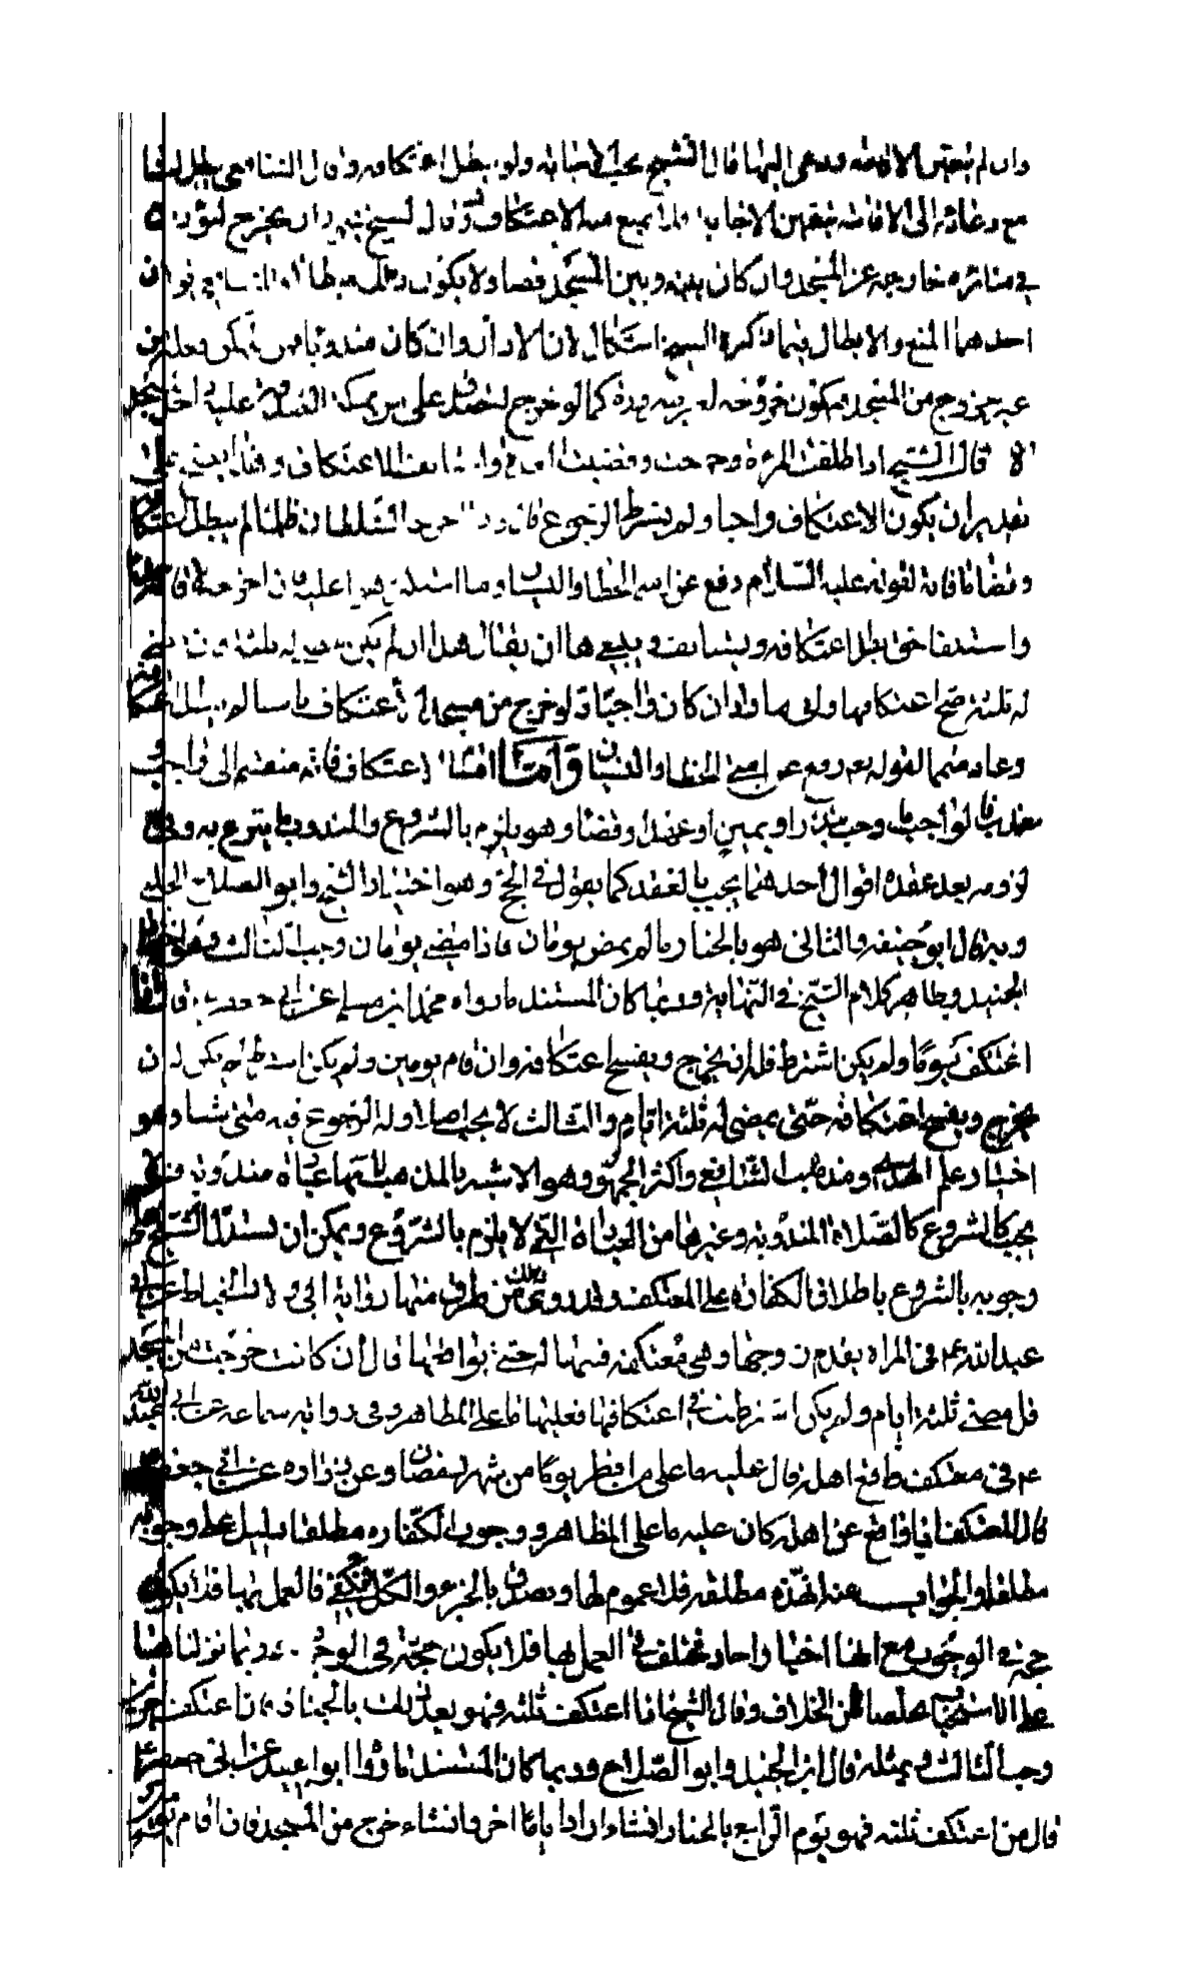 وان لم تتعين الاقامة ودعى اليها قال الشيخ يجب الاجابة ولو يبطل اعتكافه وقال الشافعي يبطل لنا
مع دعائه الى الاقامة يتعين الاجابة فلا يمنع منه الاعتكاف قال الشيخ يجوز ان يخرج ليؤذن
في منارة خارجة عن المسجد وان كان بينه وبين المسجد فضا ولا يكون مبطلا وللشافعي قولان
احدهما المنع والابطال فيما ذكره الشيخ اشكال لان الاذان وان كان مندوبا
خروج من المسجد فيكون خروجه لغير ضرورة كما لو خرج ليتصدق على من يمكنه الصدقة عليه
قال الشيخ اذا طلقت المرءة خرجت وقضيت العدة واستانفت الاعتكاف
تقدير ان يكون الاعتكاف واجبا ولم يشترط الرجوع السلطان ظلما لم يبطل اعتكا
وقضا ما فاته لقوله عليه السلام رفع عن امتي الخطا والنسيان وما استكرهوا عليه وان اخرجه
واستيفا حق بطل اعتكافه ويستانف وينبغي هاهنا ان يقال هذا ان لم يكن مضى له ثلثة فان مضى
له ثلثة صح اعتكافها ولو كان واجبا ولو خرج من مسجد الاعتكاف ناسيا لم يبطل اعتكا
وعاد متمما لقوله ع رفع عن امتي الخطا والنسيان واما اقسام الاعتكاف فانه منقسم الى واجب و
مندوب فالواجب ما وجب بنذر او يمين او عهد او قضا وهو يلزم بالشروع والمندوب ما يتبرع به وفي
لزومه بعد عقده اقوال احدهما يجب بالعقد كما يقول في الحج وهو اختيار الشيخ وابو الصلاح الحلبي
وبه قال ابو حنيفة والثاني هو بالخيار ما لم يمض يومان فاذا مضى يومان وجب الثالث وهو اختيار ابن
الجنيد وظاهر كلام الشيخ في النهاية وربما كان المستند ما رواه محمد ابن مسلم عن ابي جعفر ع قال اذا
اعتكف يوما ولم يكن اشترط فله ان يخرج ويفسخ اعتكافه وان قام يومين ولم يكن اشترط لم يكن له ان
يخرج ويفسخ اعتكافه حتى يمضي له ثلثة ايام والثالث لا يجب اصلا وله الرجوع فيه متى شا وهو
اختيار علم الهدى ومذهب الشافعي واكثر الجمهور وهو الاشبه بالمذهب لانها عبادة مندوبة فلا
يجب بالشروع كالصلاة المندوبة وغيرها من العبادات التي لا يلزم بالشروع ويمكن ان يستدل الشيخ على
وجوبه بالشروع باطلاق الكفارة على المعتكف وقد روى ذلك من طرق منها رواية ابي ولاد الحناط عن ابي
عبدالله ع في المراة بقدم زوجها وهي معتكفة فتهيات له حتى يواطئها قال ان كانت خرجت من المسجد
قبل مضى ثلثة ايام ولم يكن اشترطت في اعتكافها فعليها ما على المظاهر وفي رواية سماعة عن ابي عبدالله
ع في معتكف واقع اهله قال عليه ما على من افطر يوما من شهر رمضان وعن زرارة عن ابي جعفر ع
قال المعتكف اذا واقع عن اهله كان عليه ما على المظاهر ووجوب الكفارة مطلقا دليل على وجوبه
مطلقا والجواب عنه ان هذه مطلقة فلا عموم لها ويصدق بالجزء والكل فيكفي في العمل بها فلا يكون
حجة في الوجوب مع انها اخبار احاد مختلف في العمل بها فلا يكون حجة في الوجوب وربما نزلناها
على الاستحباب خلاصا من الخلاف وقال الشيخ اذا اعتكف ثلثة فهو بعد ذلك بالخيار فان اعتكف اخر
وجب الثالث وبمثله قال ابن الجنيد وابو الصلاح وربما كان المستند ما رواه ابو عبيدة عن ابي جعفر ع
قال من اعتكف ثلثة فهو يوم الرابع بالخيار ان شاء زاد اياما اخر وان شاء خرج من المسجد فان اقام يومين